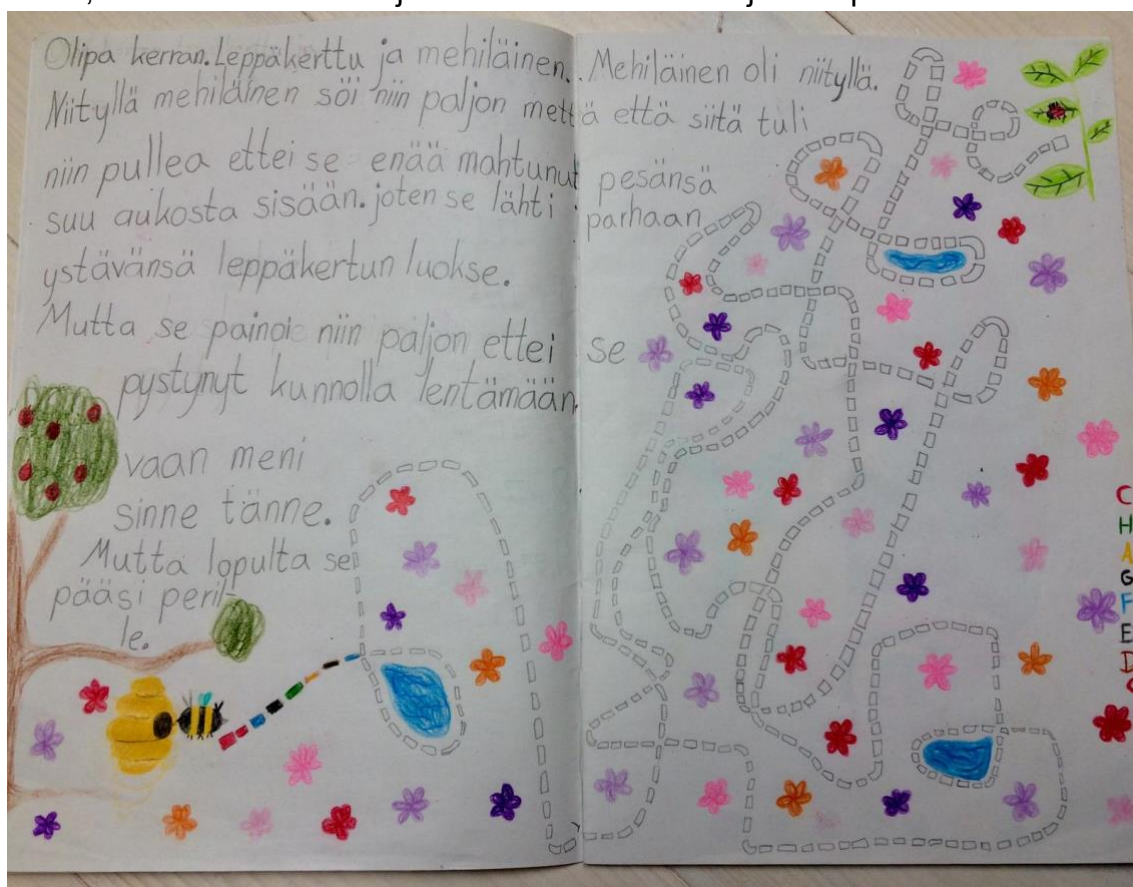 Olipa kerran.Leppäkerttu ja mehiläinen.. Mehiläinen oli niityllä.
Niityllä mehiläinen söi niin paljon mettä että siitä tuli
niin pullea ettei se enää mahtunut pesänsä
suu aukosta sisään.joten se lähti parhaan
ystävänsä leppäkertun luokse.
Mutta se painoi niin paljon ettei se
pystynyt kunnolla lentämään
vaan meni
sinne tänne.
Mutta lopulta se
pääsi peril-
le.
C
H
A
G
F
E
D